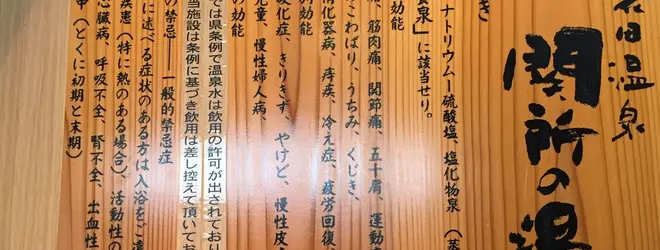 温泉
関所の湯
ナトリウム－硫酸塩、塩化物泉
食泉」に該当せり。
の効能
筋肉痛、関節痛、五十肩、運動
こわばり、うちみ、くじき、
化器病、痔疾、冷え症、疲労回復、
の効能
硬化症、きりきず、やけど、慢性皮
児童、慢性婦人病、
では県条例で温泉水は飲用の許可が出されており
当施設は条例に基づき飲用は差し控えて頂いてお
の禁忌――一般的禁忌症
に述べる症状のある方は入浴をご遠
疾患（特に熱のある場合）、活動性の
心臓病、呼吸不全、腎不全、出血性
中（とくに初期と末期）